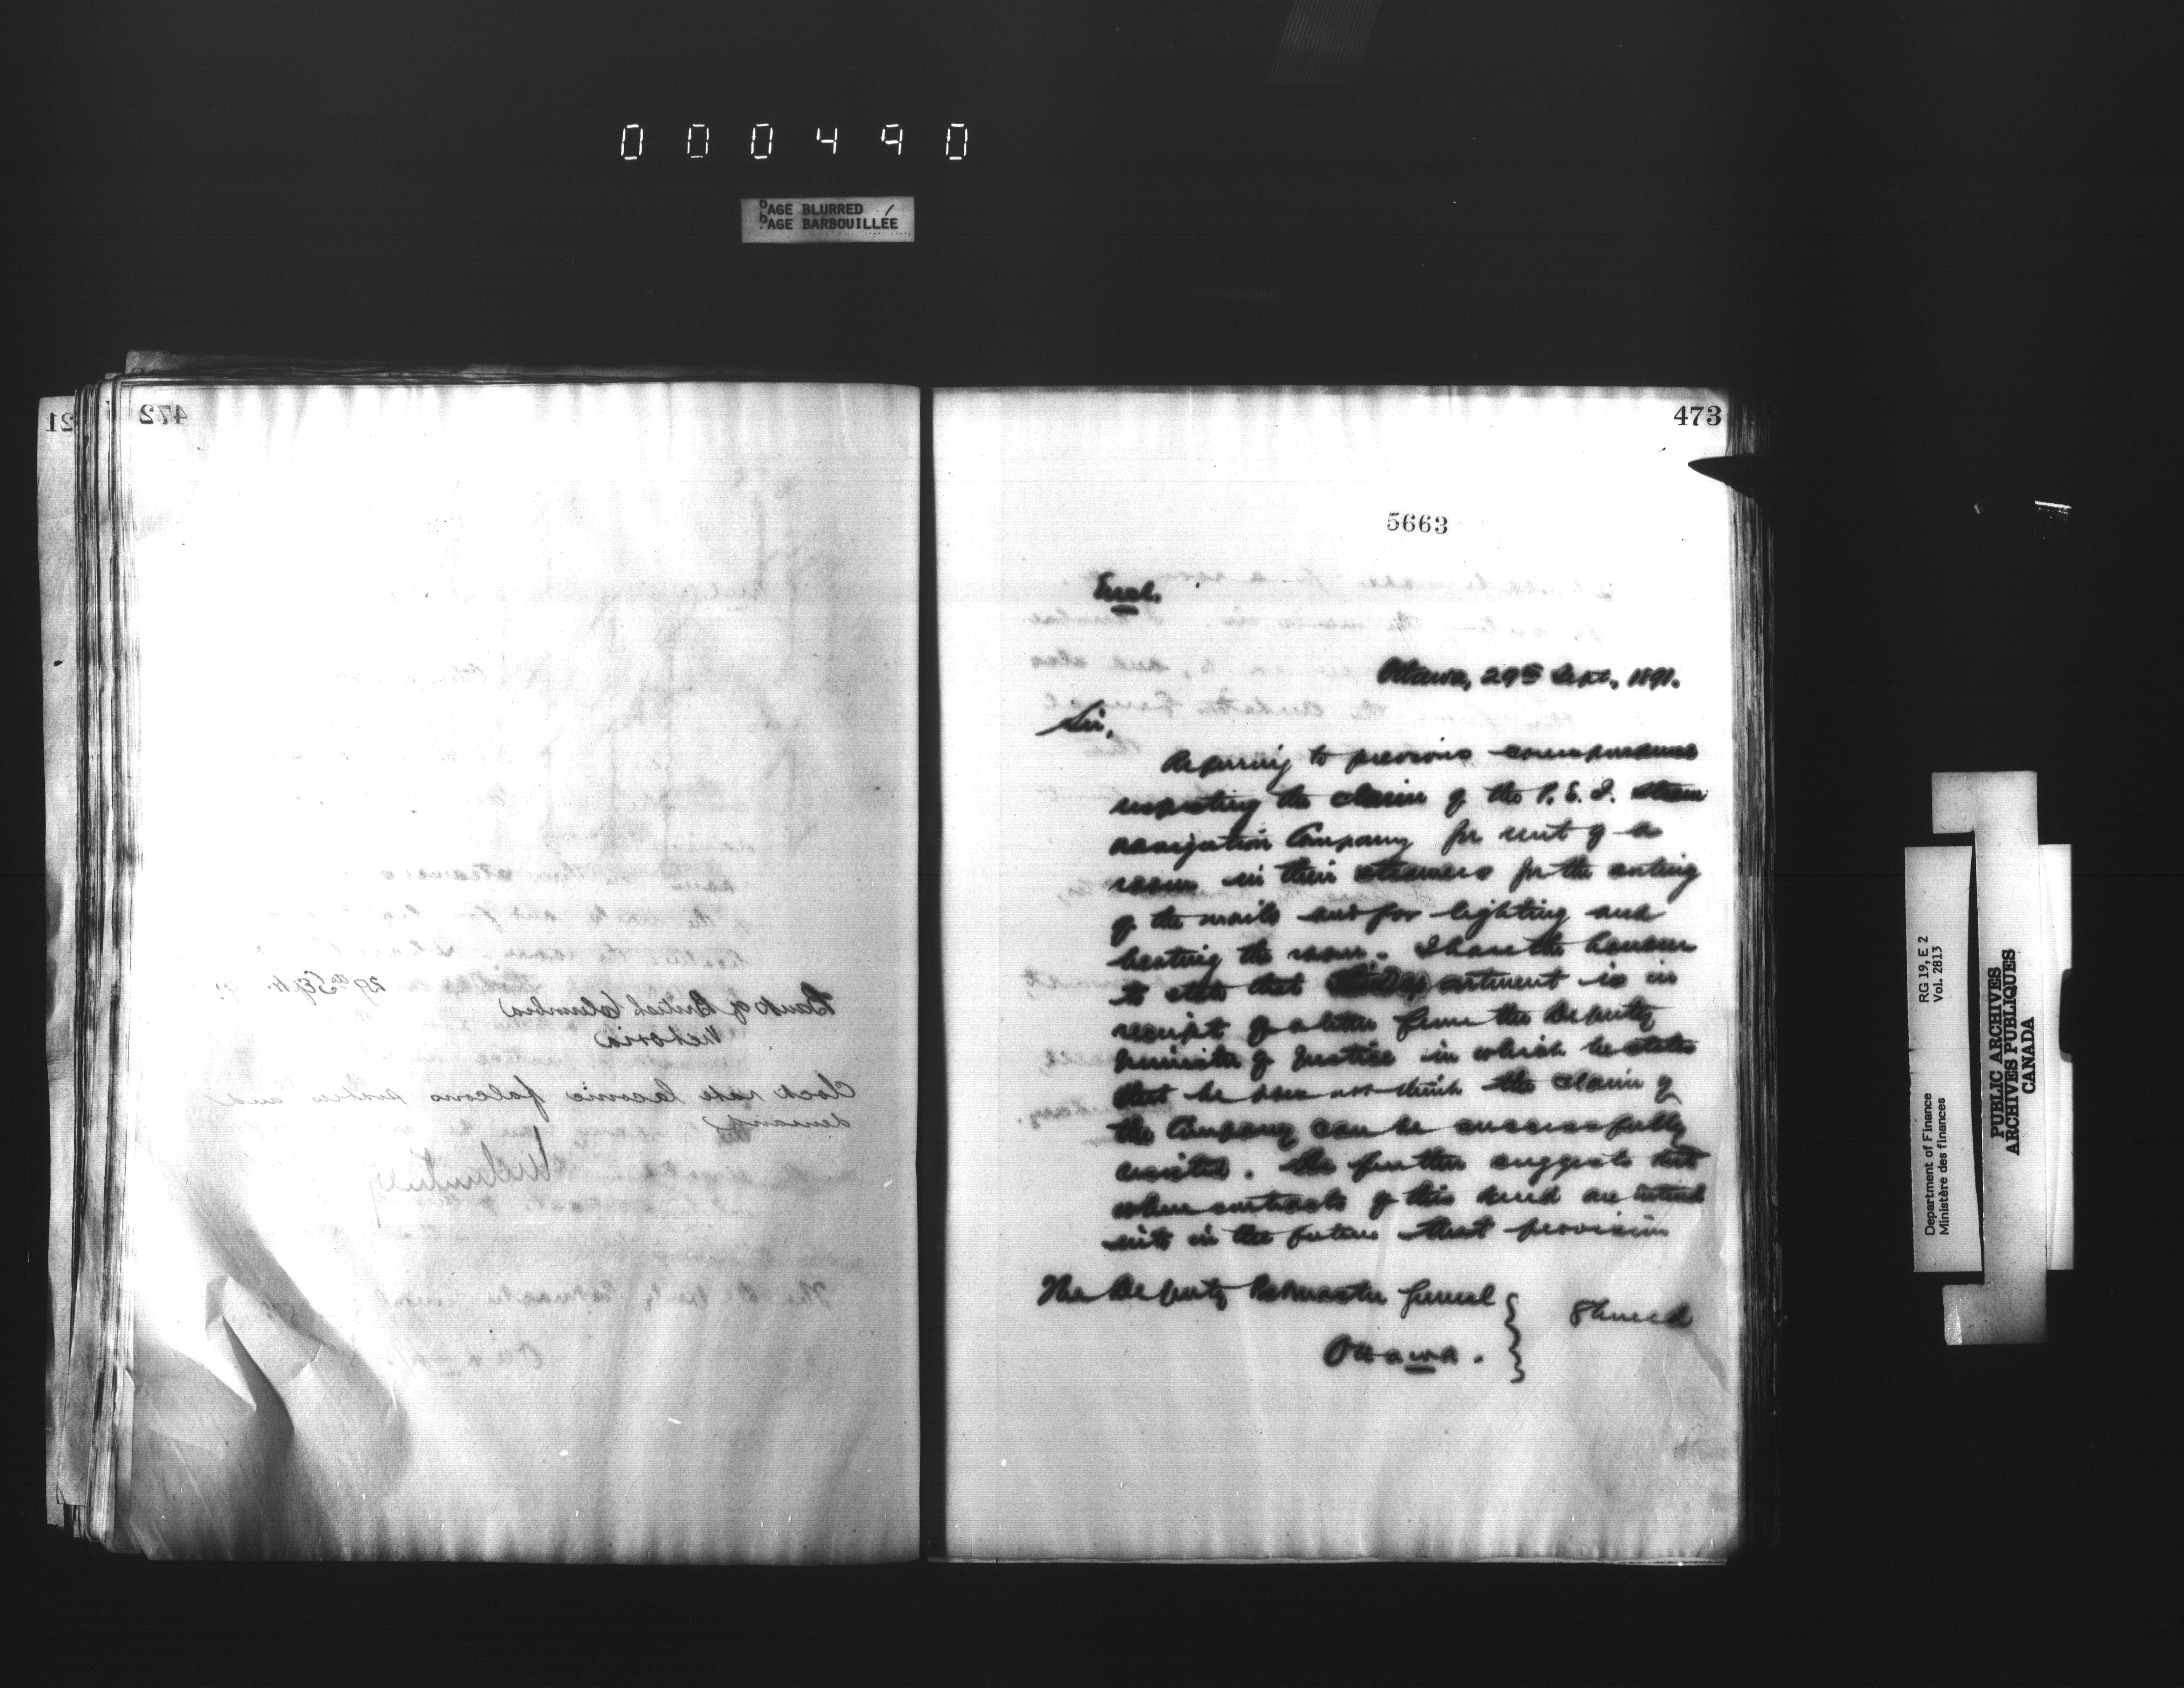 000490
PAGE BLURRED
PAGE BARBOUILLÉE
21
472
29th Sept. 91
Bank of British Columbia
Victoria
Clock rate laconic falcons and
demand
473
5663
Encl.
Ottawa, 29th Sept., 1891.
Sir,
Referring to previous correspondence
respecting the claim of the P. E. I. Steam
navigation Company for rent of a
room in their steamers for the sorting
of the mails and for lighting and
heating the room. I have the honour
to state that this Department is in
receipt of a letter from the Deputy
Minister of Justice in which he states
that he does not think the claim of
the Company can be successfully
resisted. He further suggests that
when contracts of this kind are entered
into in the future that provision
The Deputy Postmaster General
Ottawa.
should
RG 19, E 2
Vol. 2813
Department of Finance
Ministère des finances
PUBLIC ARCHIVES
ARCHIVES PUBLIQUES
CANADA